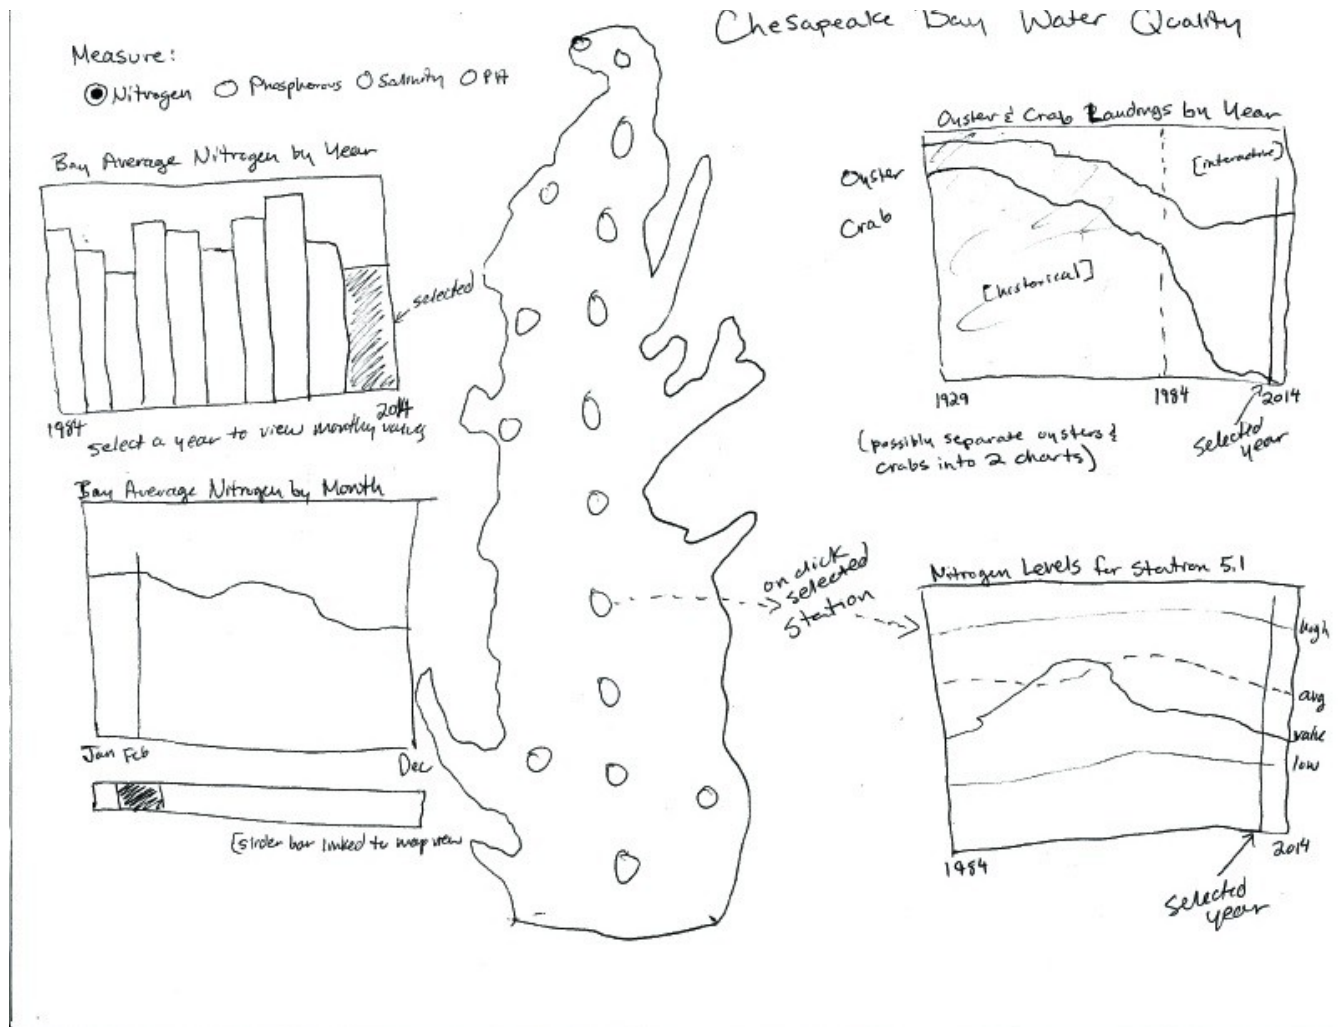 Chesapeake Bay Water Quality
Measure:
Nitrogen Phosphorous Salinity PH
Bay Average Nitrogen by Year
selected
1984
2014
select a year to view monthly values
Bay Average Nitrogen by Month
Jan Feb
Dec
[slider bar linked to map view
on click
selected
station
Oyster & Crab Landings by Year
Oyster
Crab
[interactive]
[historical]
1929
1984
2014
selected
year
(possibly separate oysters &
crabs into 2 charts)
Nitrogen Levels for Station 5.1
high
avg
value
low
1984
2014
selected
year